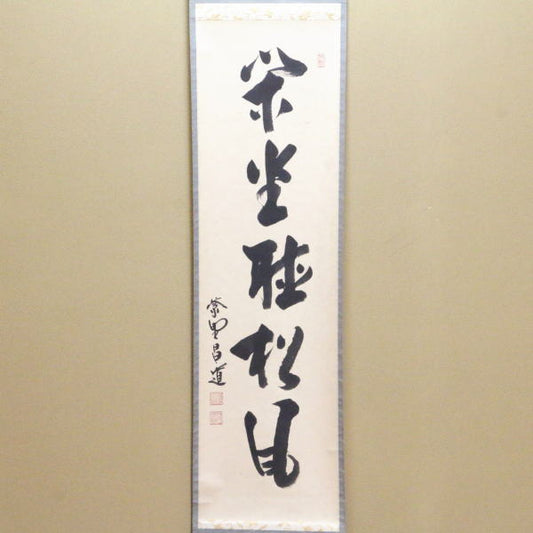 閑坐聴松風
紫野昌道